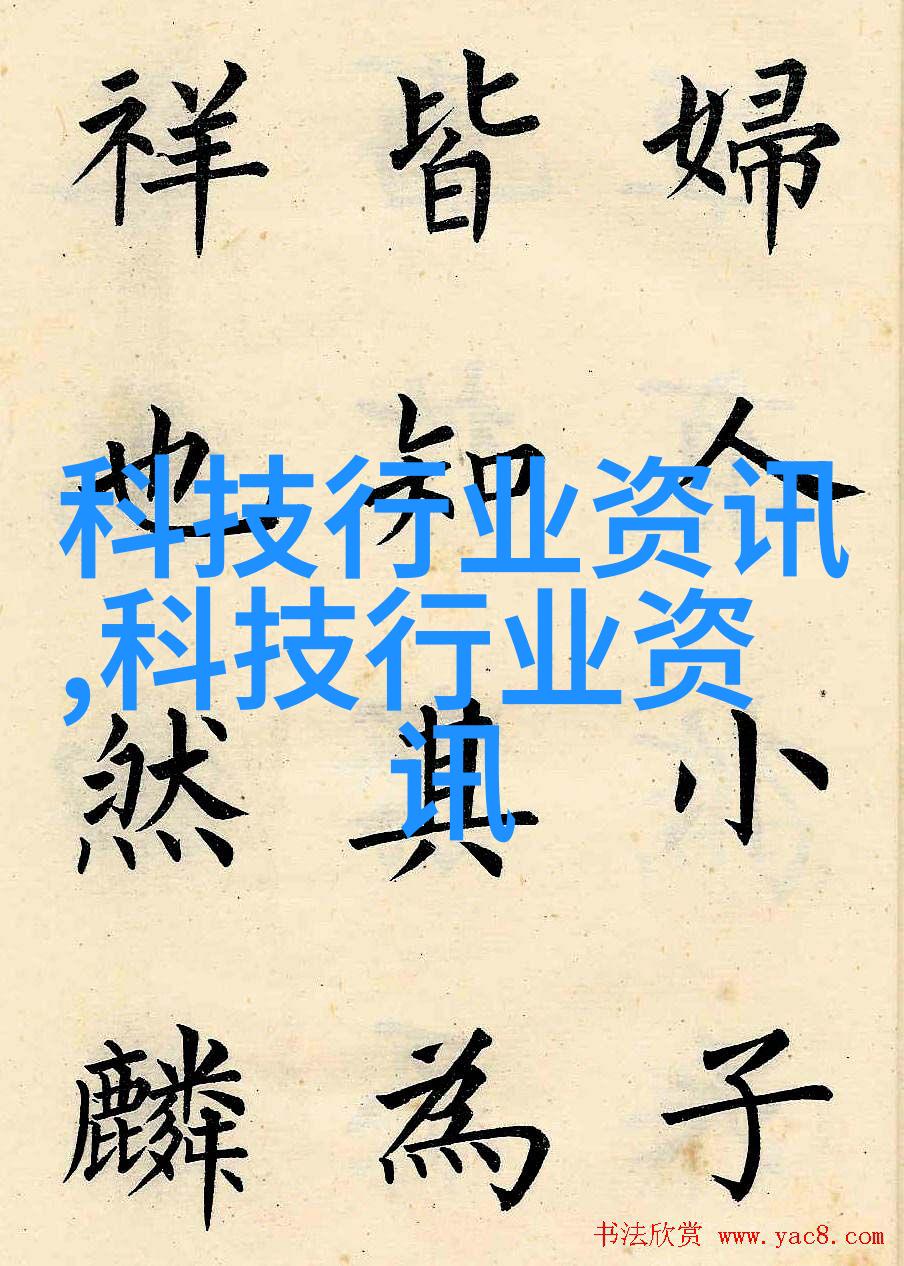 婦人小子
皆知其為
祥也然麟
科技行业资讯
,科技行业资
讯
书法欣赏 www.yac8.com